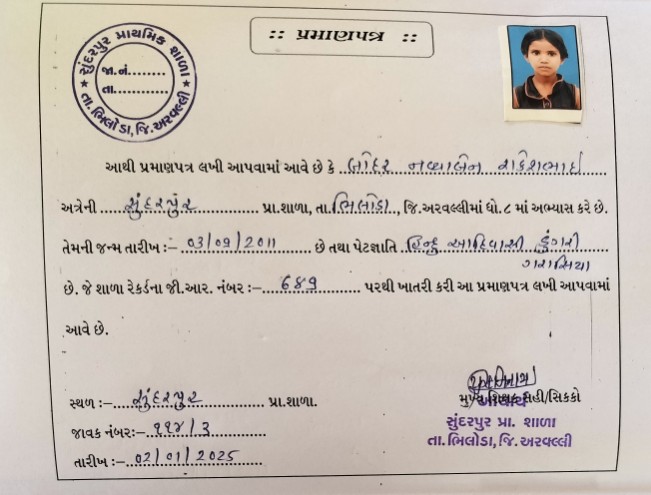 :: પ્રમાણપત્ર ::
સુંદરપુર પ્રાથમિક શાળા
જા.નં.........
તા.............
★ તા.ભિલોડા, જિ.અરવલ્લી ★
આથી પ્રમાણપત્ર લખી આપવામાં આવે છે કે નવ્યાબેન રાકેશભાઈ
અત્રેની સુંદરપુર પ્રા.શાળા, તા.ભિલોડા, જિ.અરવલ્લીમાં ધો.૮ માં અભ્યાસ કરે છે.
તેમની જન્મ તારીખ :- 03/09/2011 છે તથા પેટાજ્ઞાતિ હિન્દુ આદિવાસી ડુંગરી
ગરાસિયા
છે. જે શાળા રેકર્ડના જી.આર. નંબર :- પરથી ખાતરી કરી આ પ્રમાણપત્ર લખી આપવામાં
આવે છે.
સ્થળ :- સુંદરપુર પ્રા.શાળા.
મુખ્ય શિક્ષક સહી/સિક્કો
આચાર્ય
જાવક નંબર:- ૧૧૪/૩
સુંદરપુર પ્રા. શાળા
તારીખ :- 02/01/2025
તા.ભિલોડા, જિ.અરવલ્લી